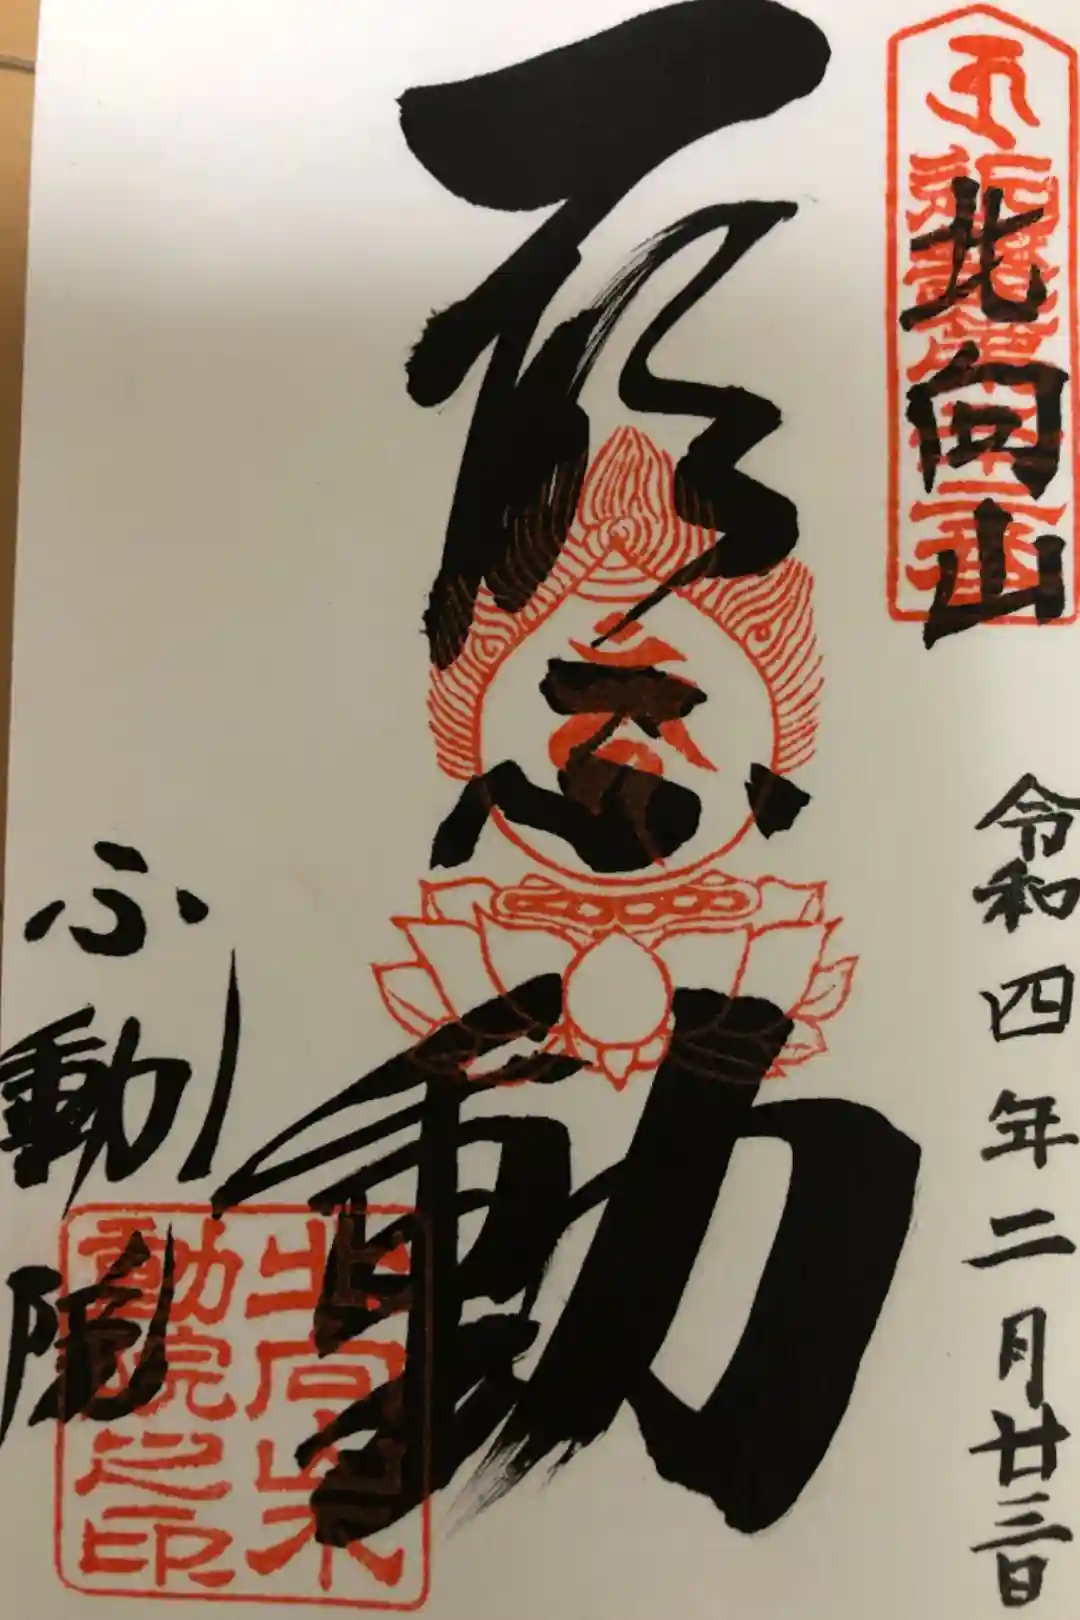 北向山
令和四年二月廿三日
動
不動院
北向山不
動院之印